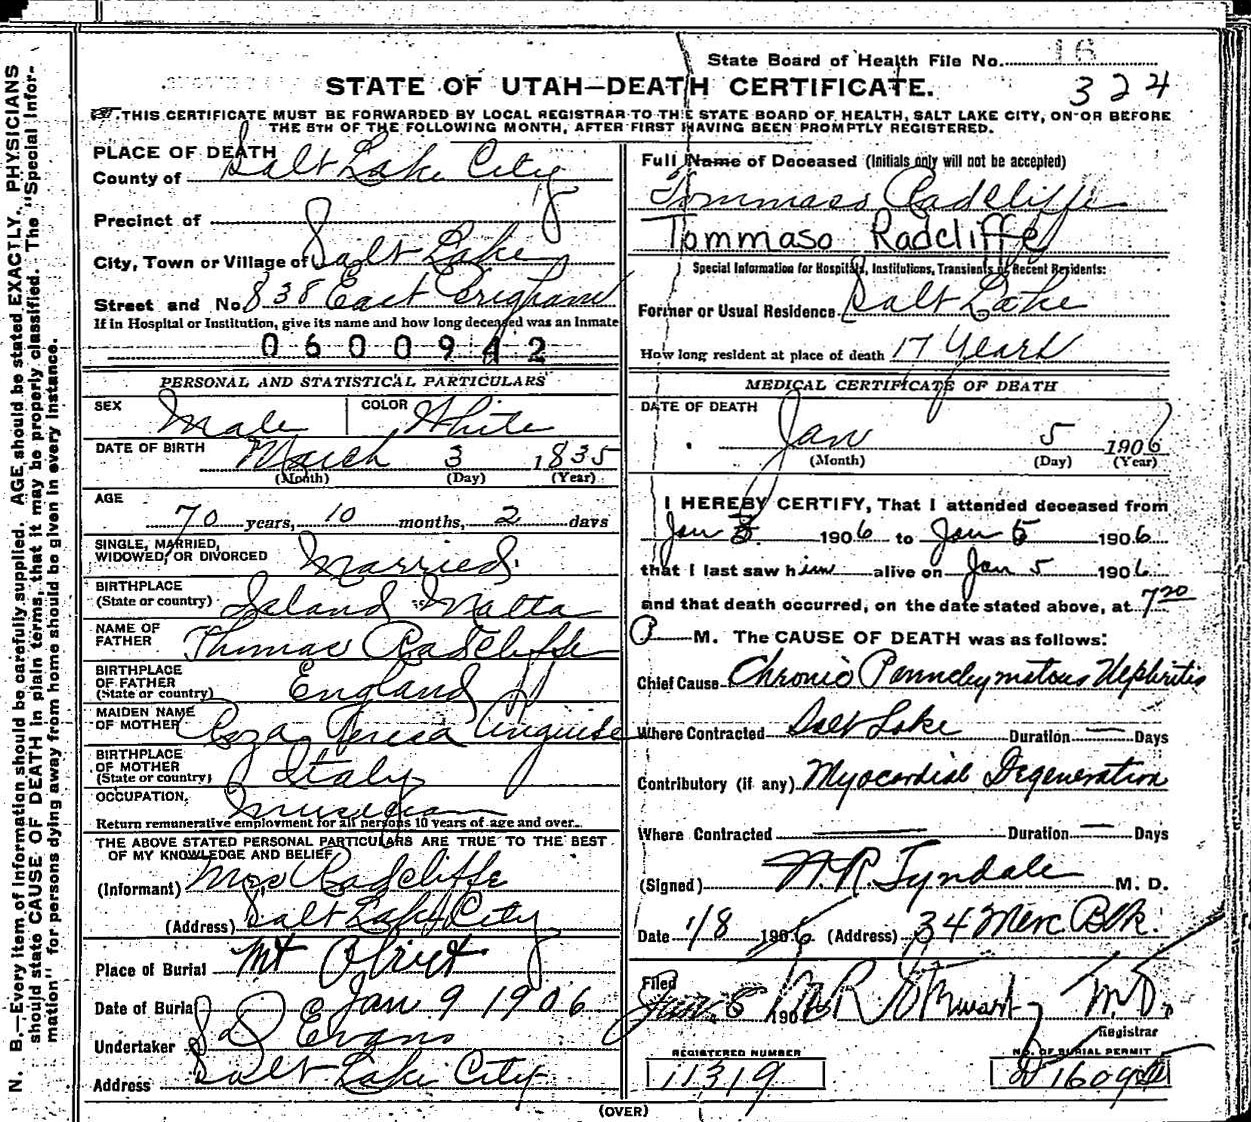 State Board of Health File No. 16
324
STATE OF UTAH—DEATH CERTIFICATE.
THIS CERTIFICATE MUST BE FORWARDED BY LOCAL REGISTRAR TO THE STATE BOARD OF HEALTH, SALT LAKE CITY, ON OR BEFORE
THE 5TH OF THE FOLLOWING MONTH, AFTER FIRST HAVING BEEN PROMPTLY REGISTERED.
PLACE OF DEATH
County of Salt Lake City
Precinct of
City, Town or Village of Salt Lake
Street and No. 838 East Brigham
If in Hospital or Institution, give its name and how long deceased was an Inmate
0600942
PERSONAL AND STATISTICAL PARTICULARS
SEX Male COLOR White
DATE OF BIRTH March 3 1835
(Month) (Day) (Year)
AGE
70 years, 10 months, 2 days
SINGLE, MARRIED,
WIDOWED, OR DIVORCED Married
BIRTHPLACE
(State or country) Island Malta
NAME OF
FATHER Thomas Radcliffe
BIRTHPLACE
OF FATHER
(State or country) England
MAIDEN NAME
OF MOTHER Teresa
BIRTHPLACE
OF MOTHER
(State or country) Italy
OCCUPATION, Musician
Return remunerative employment for all persons 10 years of age and over.
THE ABOVE STATED PERSONAL PARTICULARS ARE TRUE TO THE BEST
OF MY KNOWLEDGE AND BELIEF
(Informant) Mrs Radcliffe
(Address) Salt Lake City
Place of Burial Mt Olivet
Date of Burial Jan 9 1906
Undertaker Evans
Address Salt Lake City
Full Name of Deceased (Initials only will not be accepted)
Tommaso Radcliffe
Tommaso Radcliffe
Special Information for Hospitals, Institutions, Transients or Recent Residents:
Former or Usual Residence Salt Lake
How long resident at place of death 17 Years
MEDICAL CERTIFICATE OF DEATH
DATE OF DEATH
Jan 5 1906
(Month) (Day) (Year)
I HEREBY CERTIFY, That I attended deceased from
Jan 1906 to Jan 5 1906
that I last saw him alive on Jan 5 1906
and that death occurred, on the date stated above, at 7 20
P M. The CAUSE OF DEATH was as follows:
Chief Cause Chronic Parenchymatous Nephritis
Where Contracted Salt Lake Duration — Days
Contributory (if any) Myocardial Degeneration
Where Contracted — Duration — Days
(Signed) H. R. Tyndale M. D.
Date 1/8 1906 (Address) 34 Merc Blk.
Filed
Jan. 8 190 M R Stewart, M.D.
Registrar
REGISTERED NUMBER
11319
NO. OF BURIAL PERMIT
(OVER)
N. B.—Every item of information should be carefully supplied. AGE should be stated EXACTLY. PHYSICIANS
should state CAUSE OF DEATH in plain terms, that it may be properly classified. The "Special Infor-
mation" for persons dying away from home should be given in every instance.